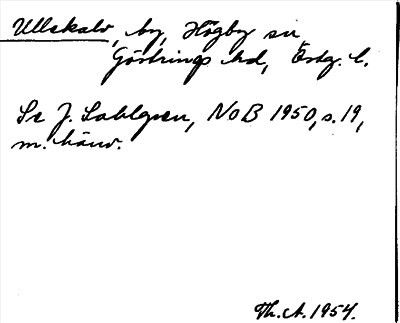 Ullekalv, by, Högby sn
Göstrings hd, Östg. l.
Se J. Sahlgren, NoB 1950, s. 19,
m. hänv.
Th. A. 1954.